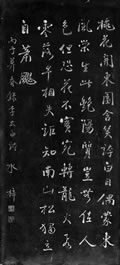 桃花開東園含笑誇白日偶蒙東
風榮生此艷陽質豈無佳人
色但恐花不實宛轉龍火飛
零落早相失詎知南山松獨立
自蕭飋
丙子春錄李太白詩 水梓